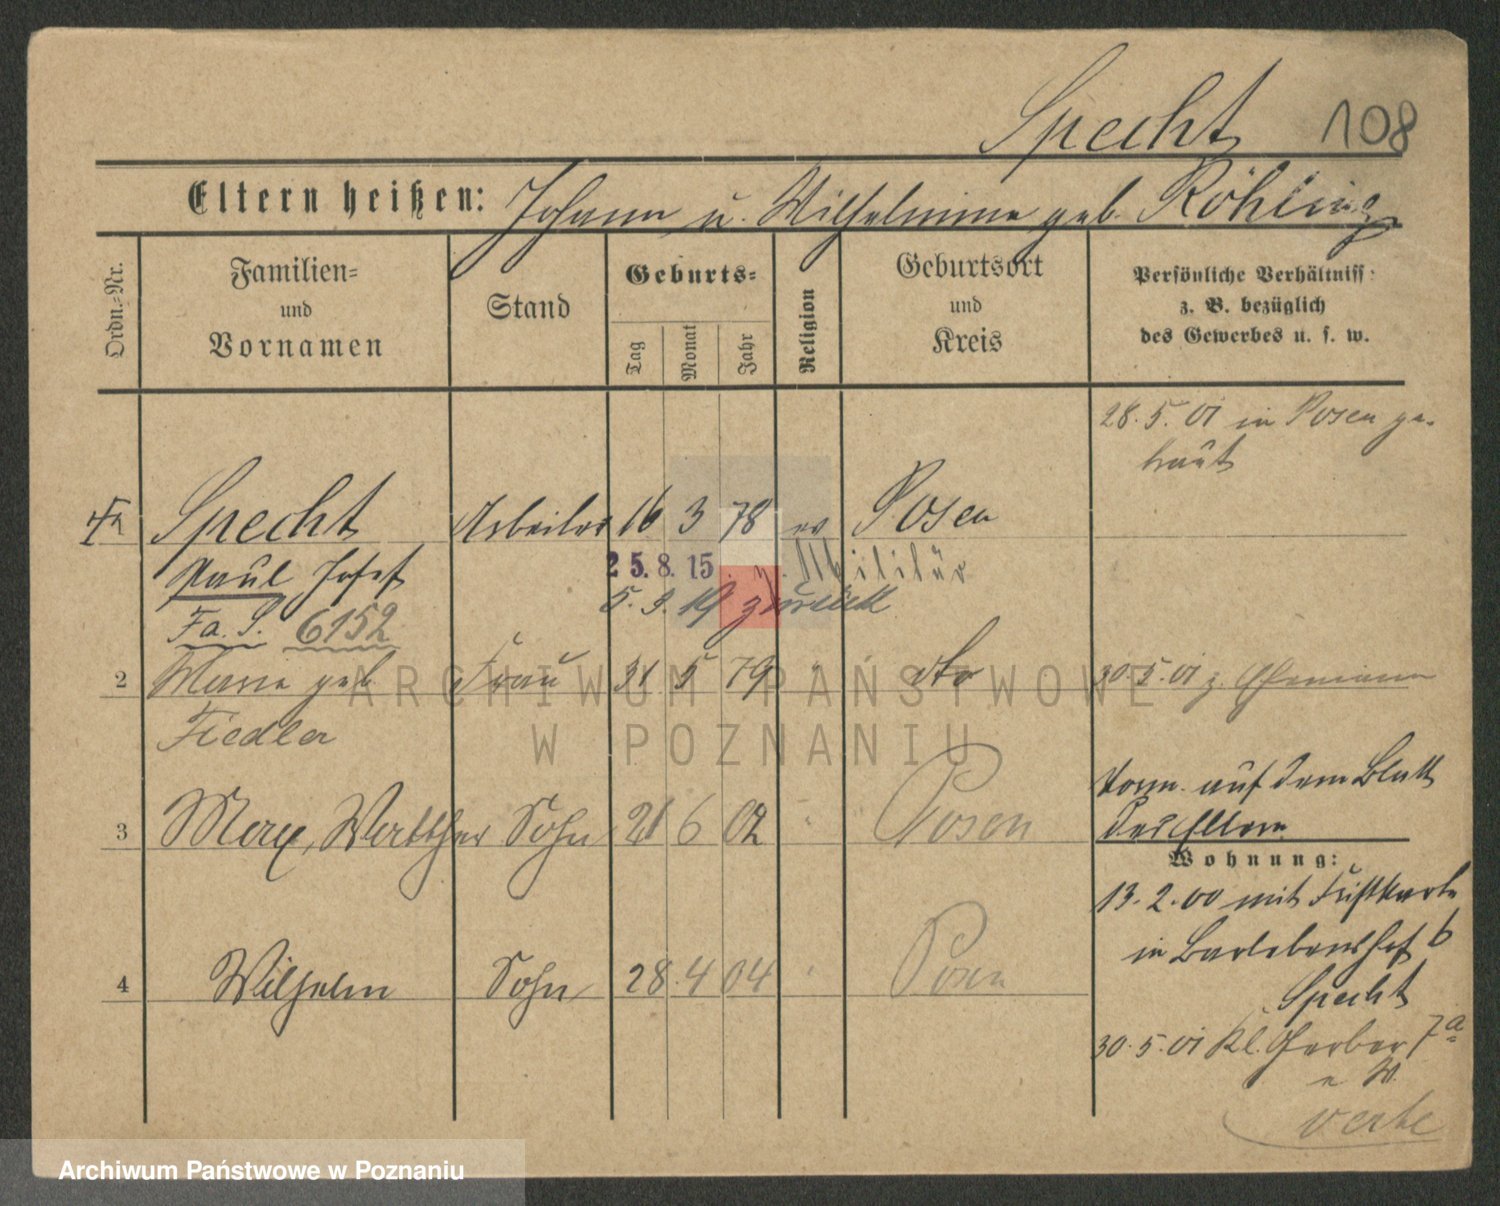 Specht 108
Eltern heißen: Johann u. Wilhelmine geb. Röhling
Ordn.-Nr.
Familien-
und
Vornamen
Stand
Geburts-
Tag
Monat
Jahr
Religion
Geburtsort
und
Kreis
Persönliche Verhältniss:
z. B. bezüglich
des Gewerbes u. s. w.
28. 5. 01 in Posen ge-
traut
Specht Arbeiter 16 3 78 ev Posen
Paul Josef 25.8.15. z. Militär
5. 3. 19 zurück
Fa. S. 6152
2 Marie geb. Frau 31 5 79 " dto 30. 5. 01 z. Ehemann
Fiedler
3 Max, Walther Sohn 21 6 02 " Posen
Vorm. auf dem Blatt
der Eltern
Wohnung:
13. 2. 00 mit
in Barlebenshof 6
Specht
4 Wilhelm Sohn 28. 4 04 " Posen
30. 5. 01 Kl. Gerber 7a
verte
ARCHIWUM PAŃSTWOWE
W POZNANIU
Archiwum Państwowe w Poznaniu